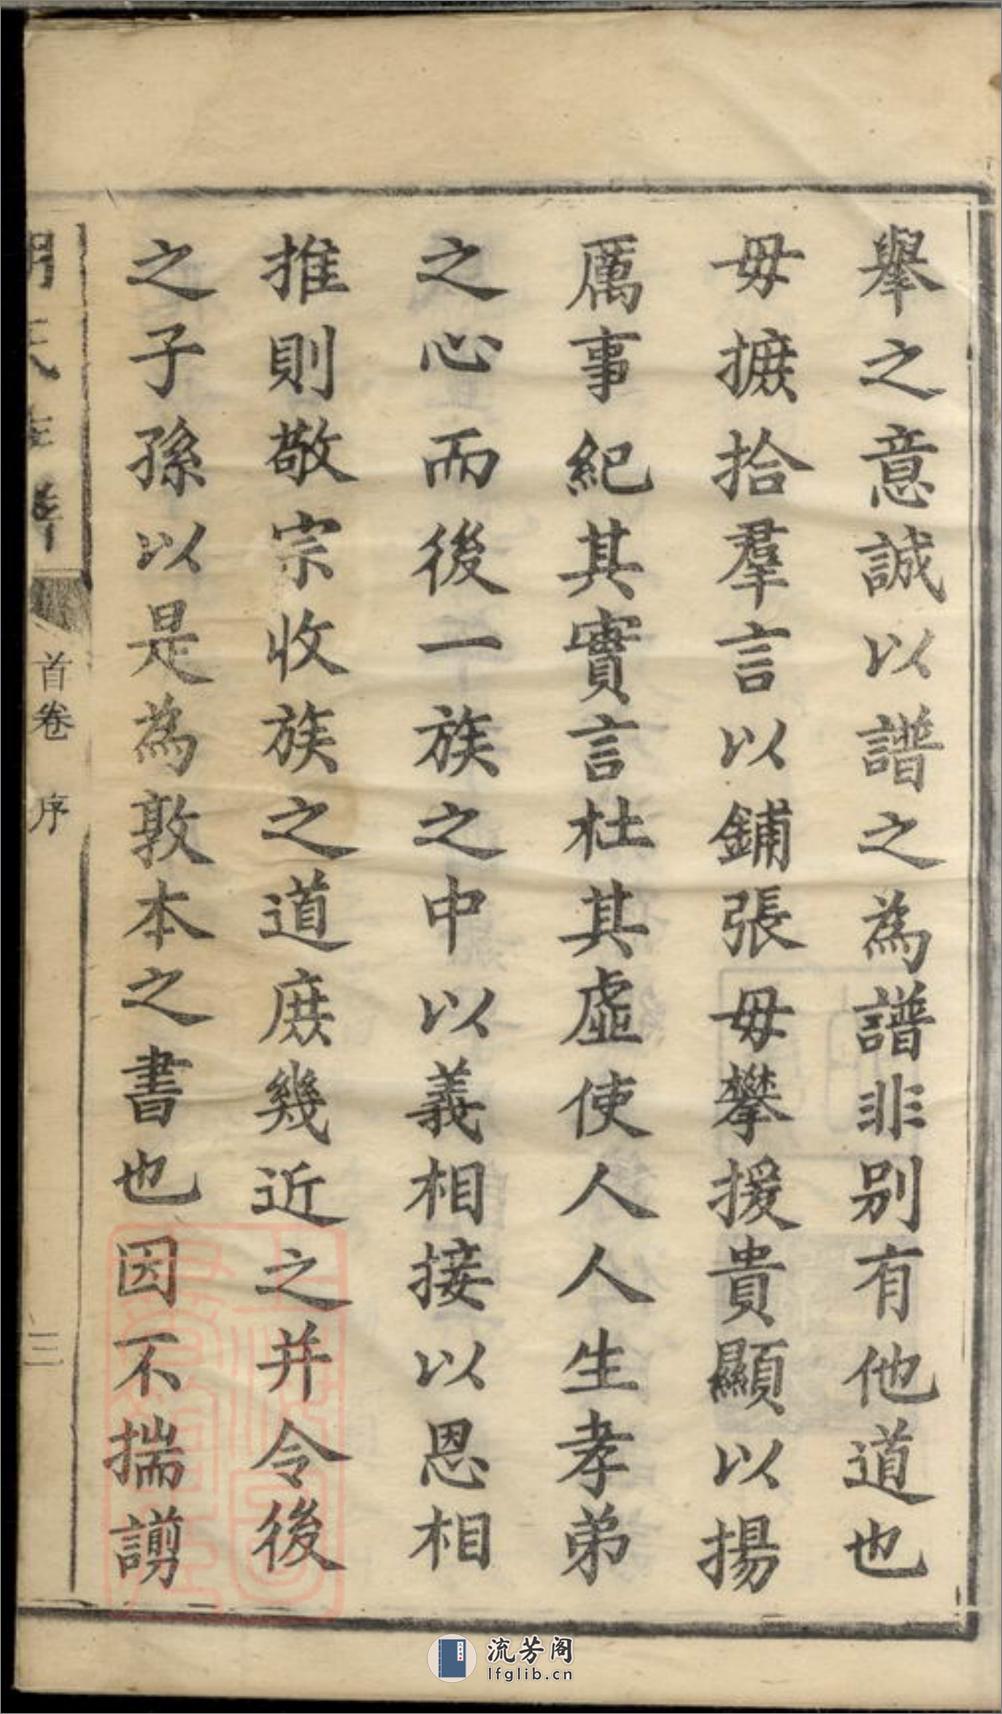 舉之意誠以譜之為譜非別有他道也
毋摭拾羣言以鋪張毋攀援貴顯以揚
厲事紀其實言杜其虛使人人生孝弟
之心而後一族之中以義相接以恩相
推則敬宗收族之道庶幾近之并令後
之子孫以是為敦本之書也因不揣謭
氏
譜
首卷 序
三
流芳阁
lfglib.cn